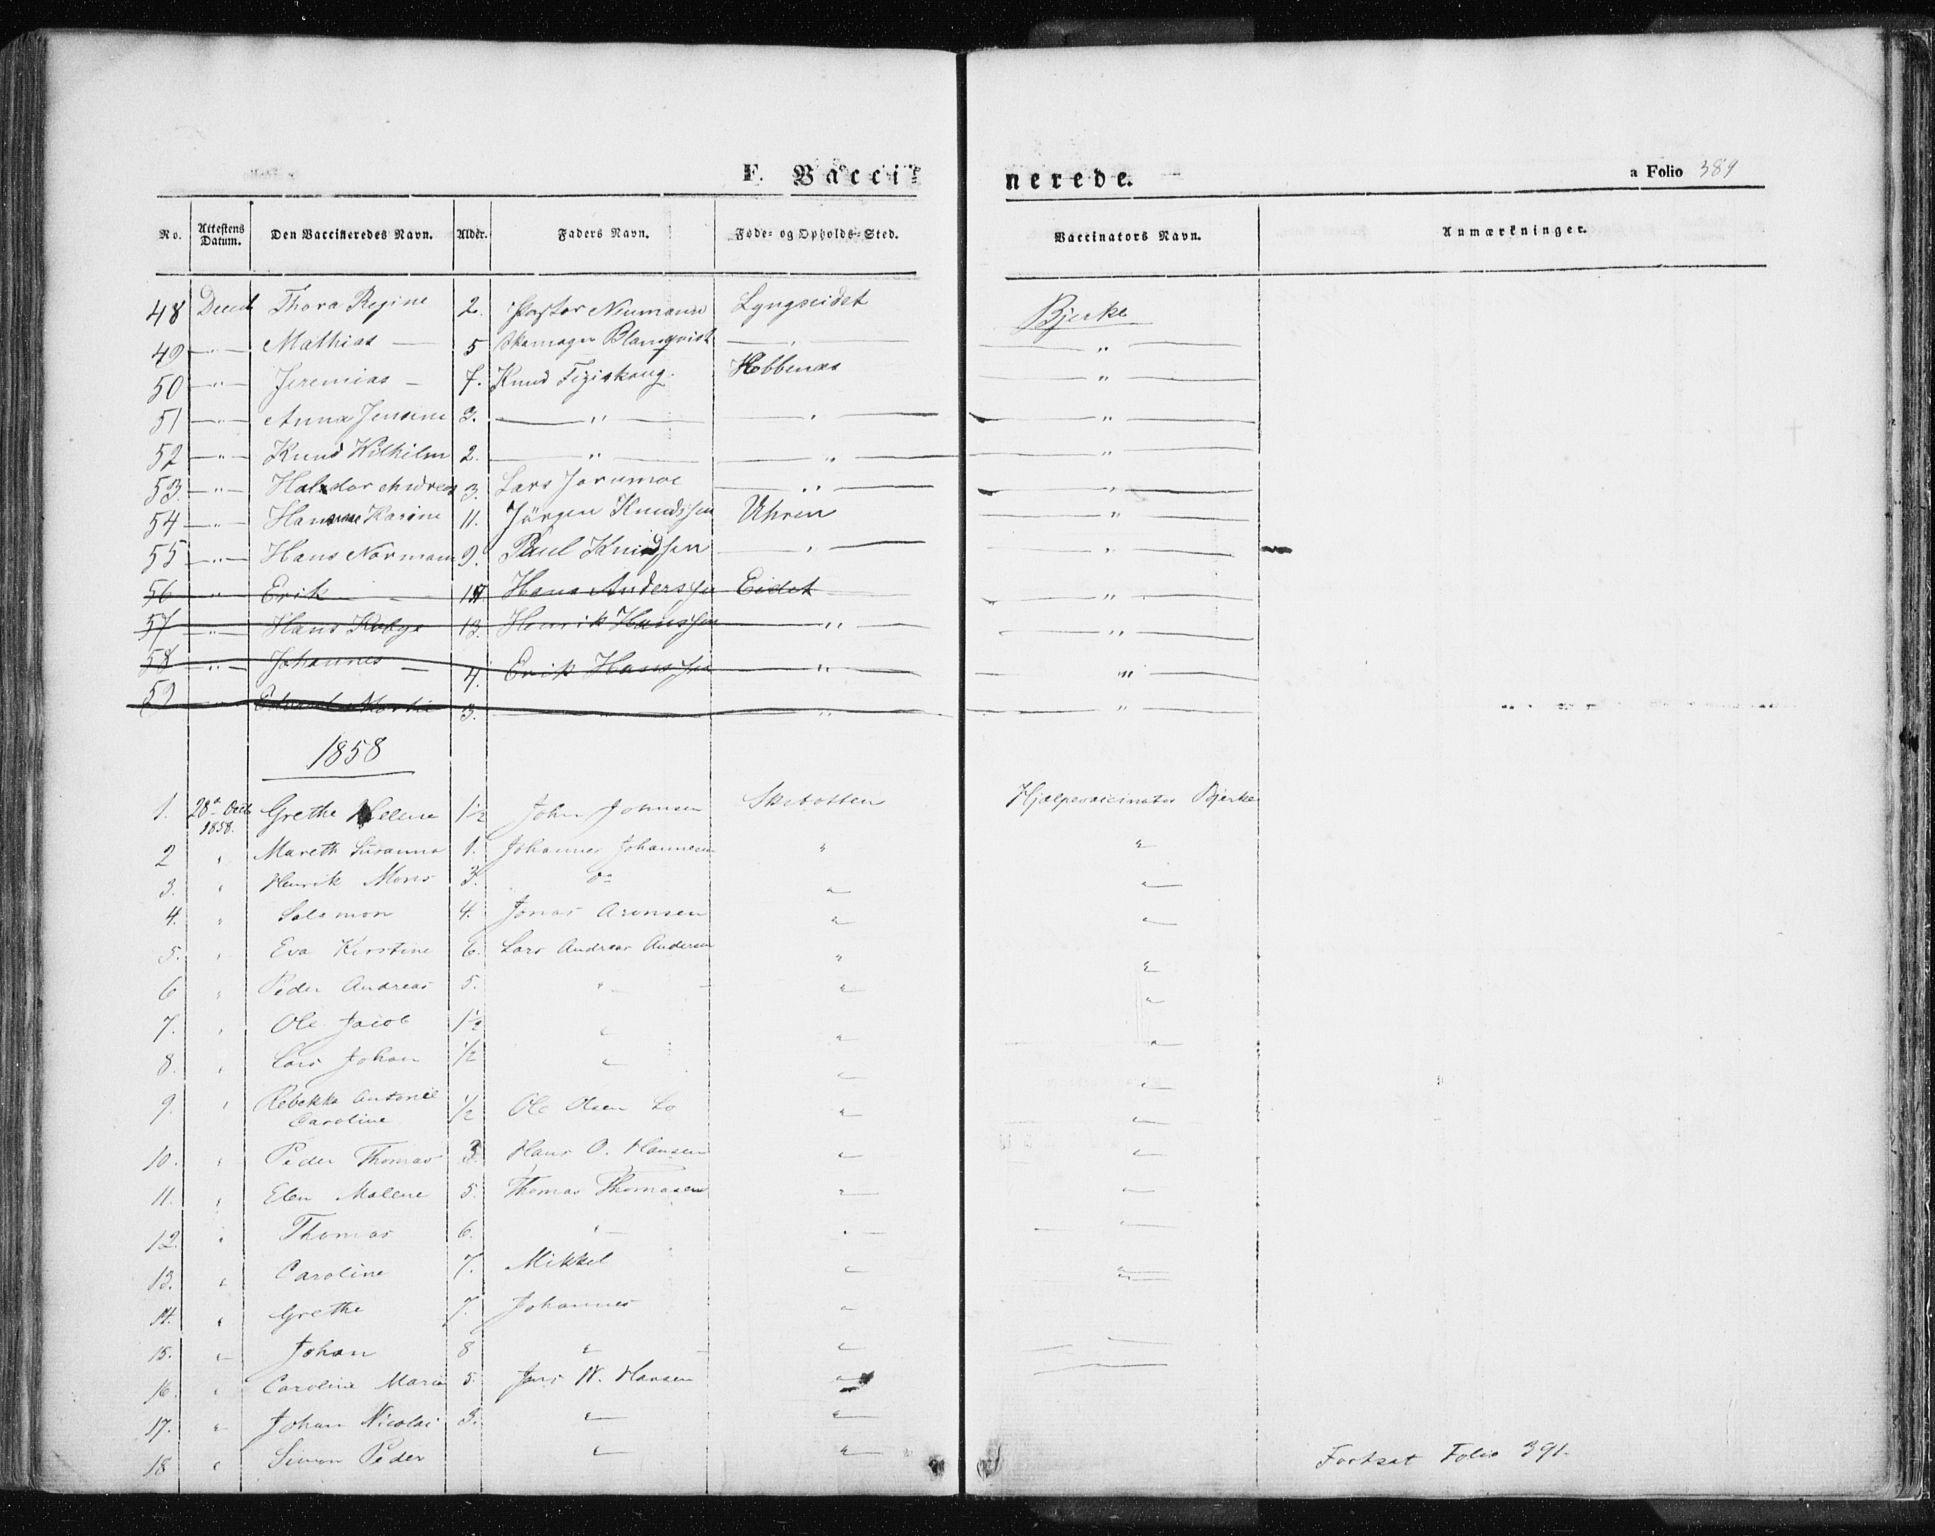 F. Vaccinerede. a Folio 389
No. Attestens Datum. Den Vaccineredes Navn. Alder. Faders Navn. Føde- og Opholds-Sted. Vaccinators Navn. Anmærkninger.
48 Decend Thora Regine 2. Pastor Neumann Lyngseidet Bjerke
49 — " — Mathias — 5 Blomqvist — " — — " —
50 — " — Jeremias — 7. Knud Hebbenæs — " —
51 — " — Anna Jensine 3. — " — — " — — " —
52 — " — Knud Vilhilm 2. — " — — " — — " —
53. — " — Haldor Andreas 3. Lars — " — — " —
54 — " — Hansine Karine 11. Jörgen Knudssen Uhren — " —
55 — " — Hans Normann 9. Paul Knudssen — " — — " —
56 — " — Erik — Hans Anderssen Eidet — " —
57 — " — Hans 13. Henrik Hanssen — " — — " —
58 — " — Johannes — 4. Erik Hanssen — " — — " —
59 — " — 3. — " — — " —
1858
1. 28de Octb 1858. Grethe Helene 1½ John Johnsen Skibotten Hjælpevaccinator Bjerke
2 " Mareth Susanna 1. Johannes Johannesen " "
3. " Henrik Mons 3. Do " "
4. " Salamon 4. Jonas Aronsen " "
5. " Eva Kirstine 6. Lars Andreas Andersen " "
6 " Peder Andreas 5. " " "
7. " Ole Jacob 1½ " " "
8. " Lars Johan ½ " " "
9. " Rebekka Antonie Caroline ½ Ole Olsen Lo " "
10. " Peder Thomas 3 Hans O. Hansen " "
11. " Elen Malene 5. Thomas Thomasen " "
12. " Thomas 6. " " "
13. " Caroline 7. Mikkel " "
14. " Grethe 7. Johannes "
15. " Johan 8 " "
16 " Caroline Maria 5. Jens N. Hansen "
17. " Johan Nicolai 3. " "
18 " Simon Peder " "
Fortsat Folio 391.